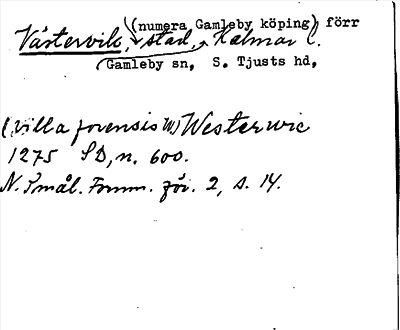 (numera Gamleby köping) förr
Västervik, stad, Kalmar l.
Gamleby sn, S. Tjusts hd,
(villa forensis W) Westerwic
1275 SD, n. 600.
N. Smål. Fornm. för. 2, s. 14.